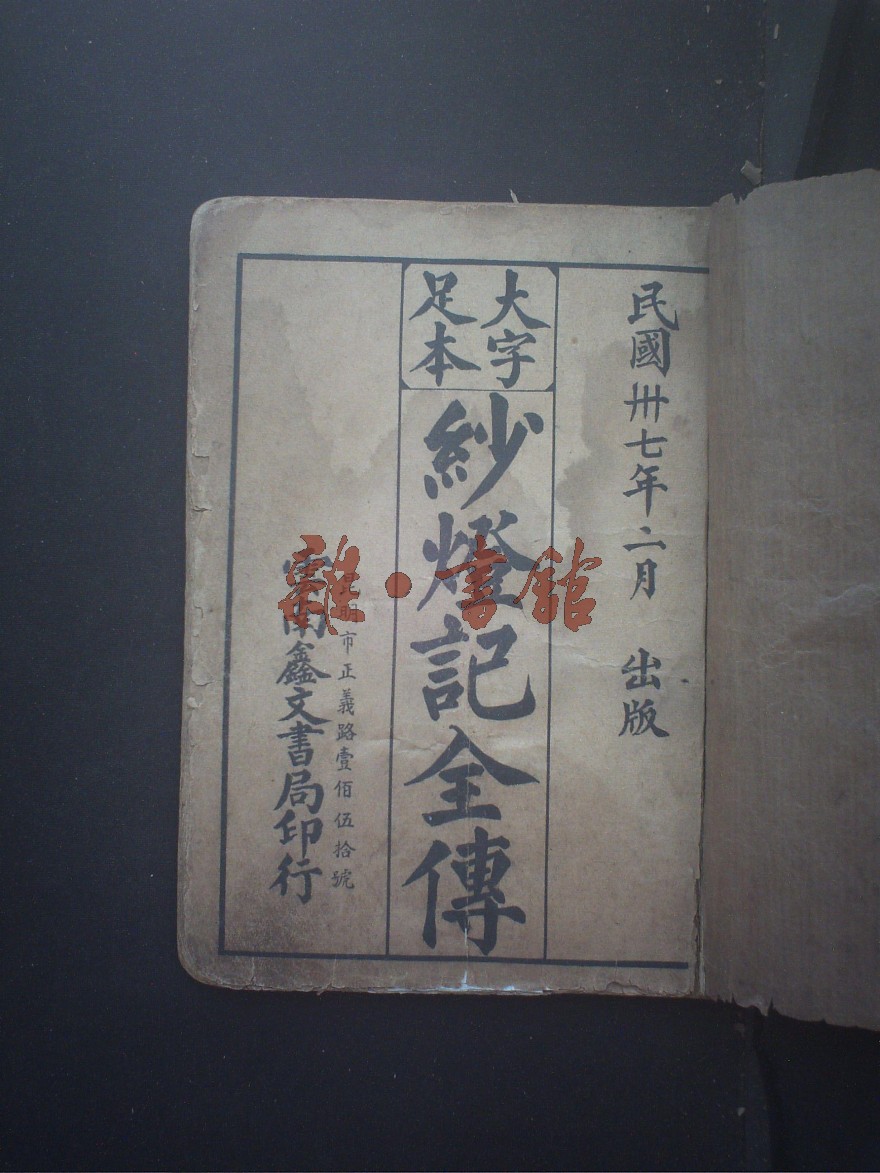 民國卅七年二月 出版
大字
足本
紗燈記全傳
昆明市正義路壹佰伍拾號
雲南鑫文書局印行
雜·書館